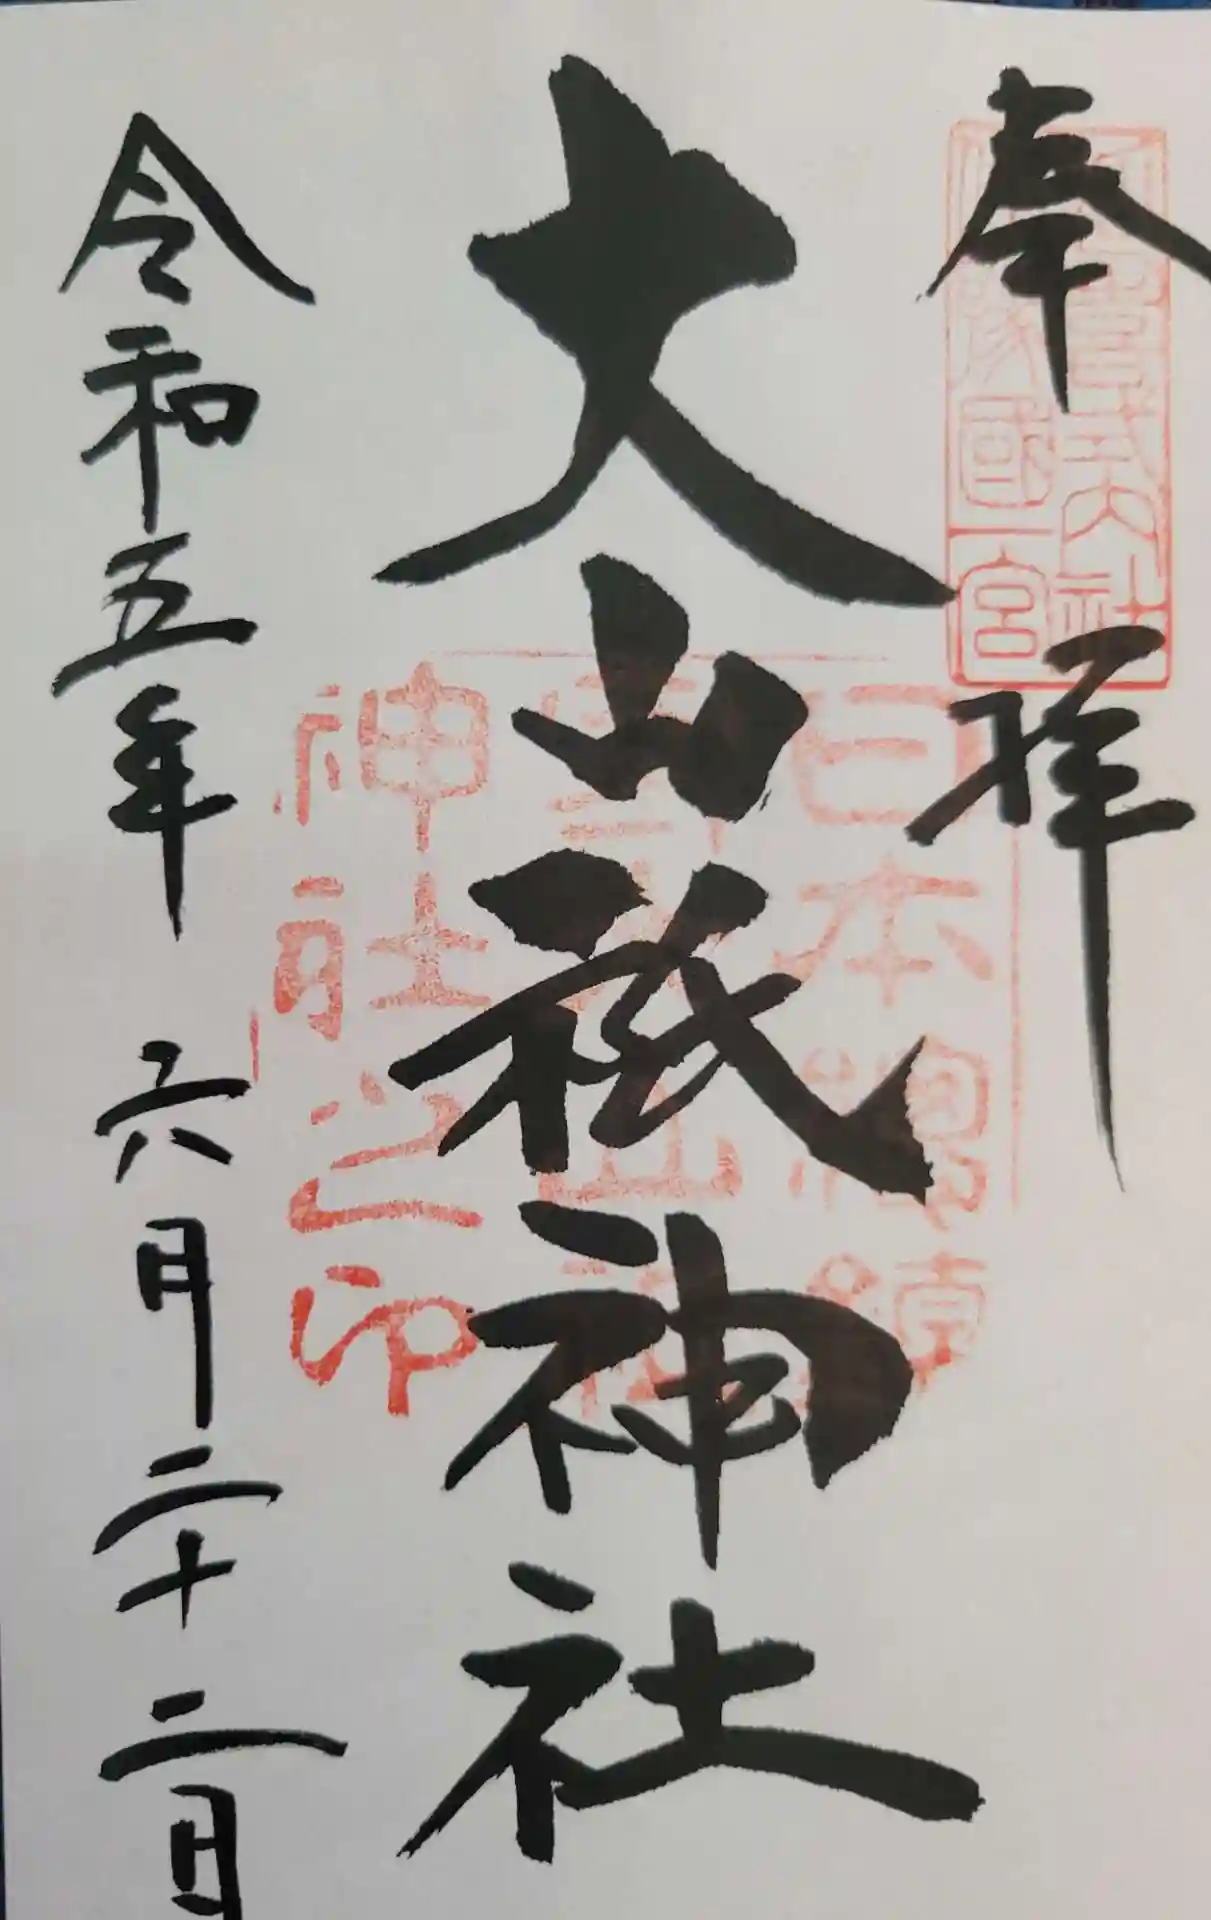 奉拝
伊豫國一宮
大山祇神社
日本總鎮
守大山祇
神社之印
令和五年 六月二十二日